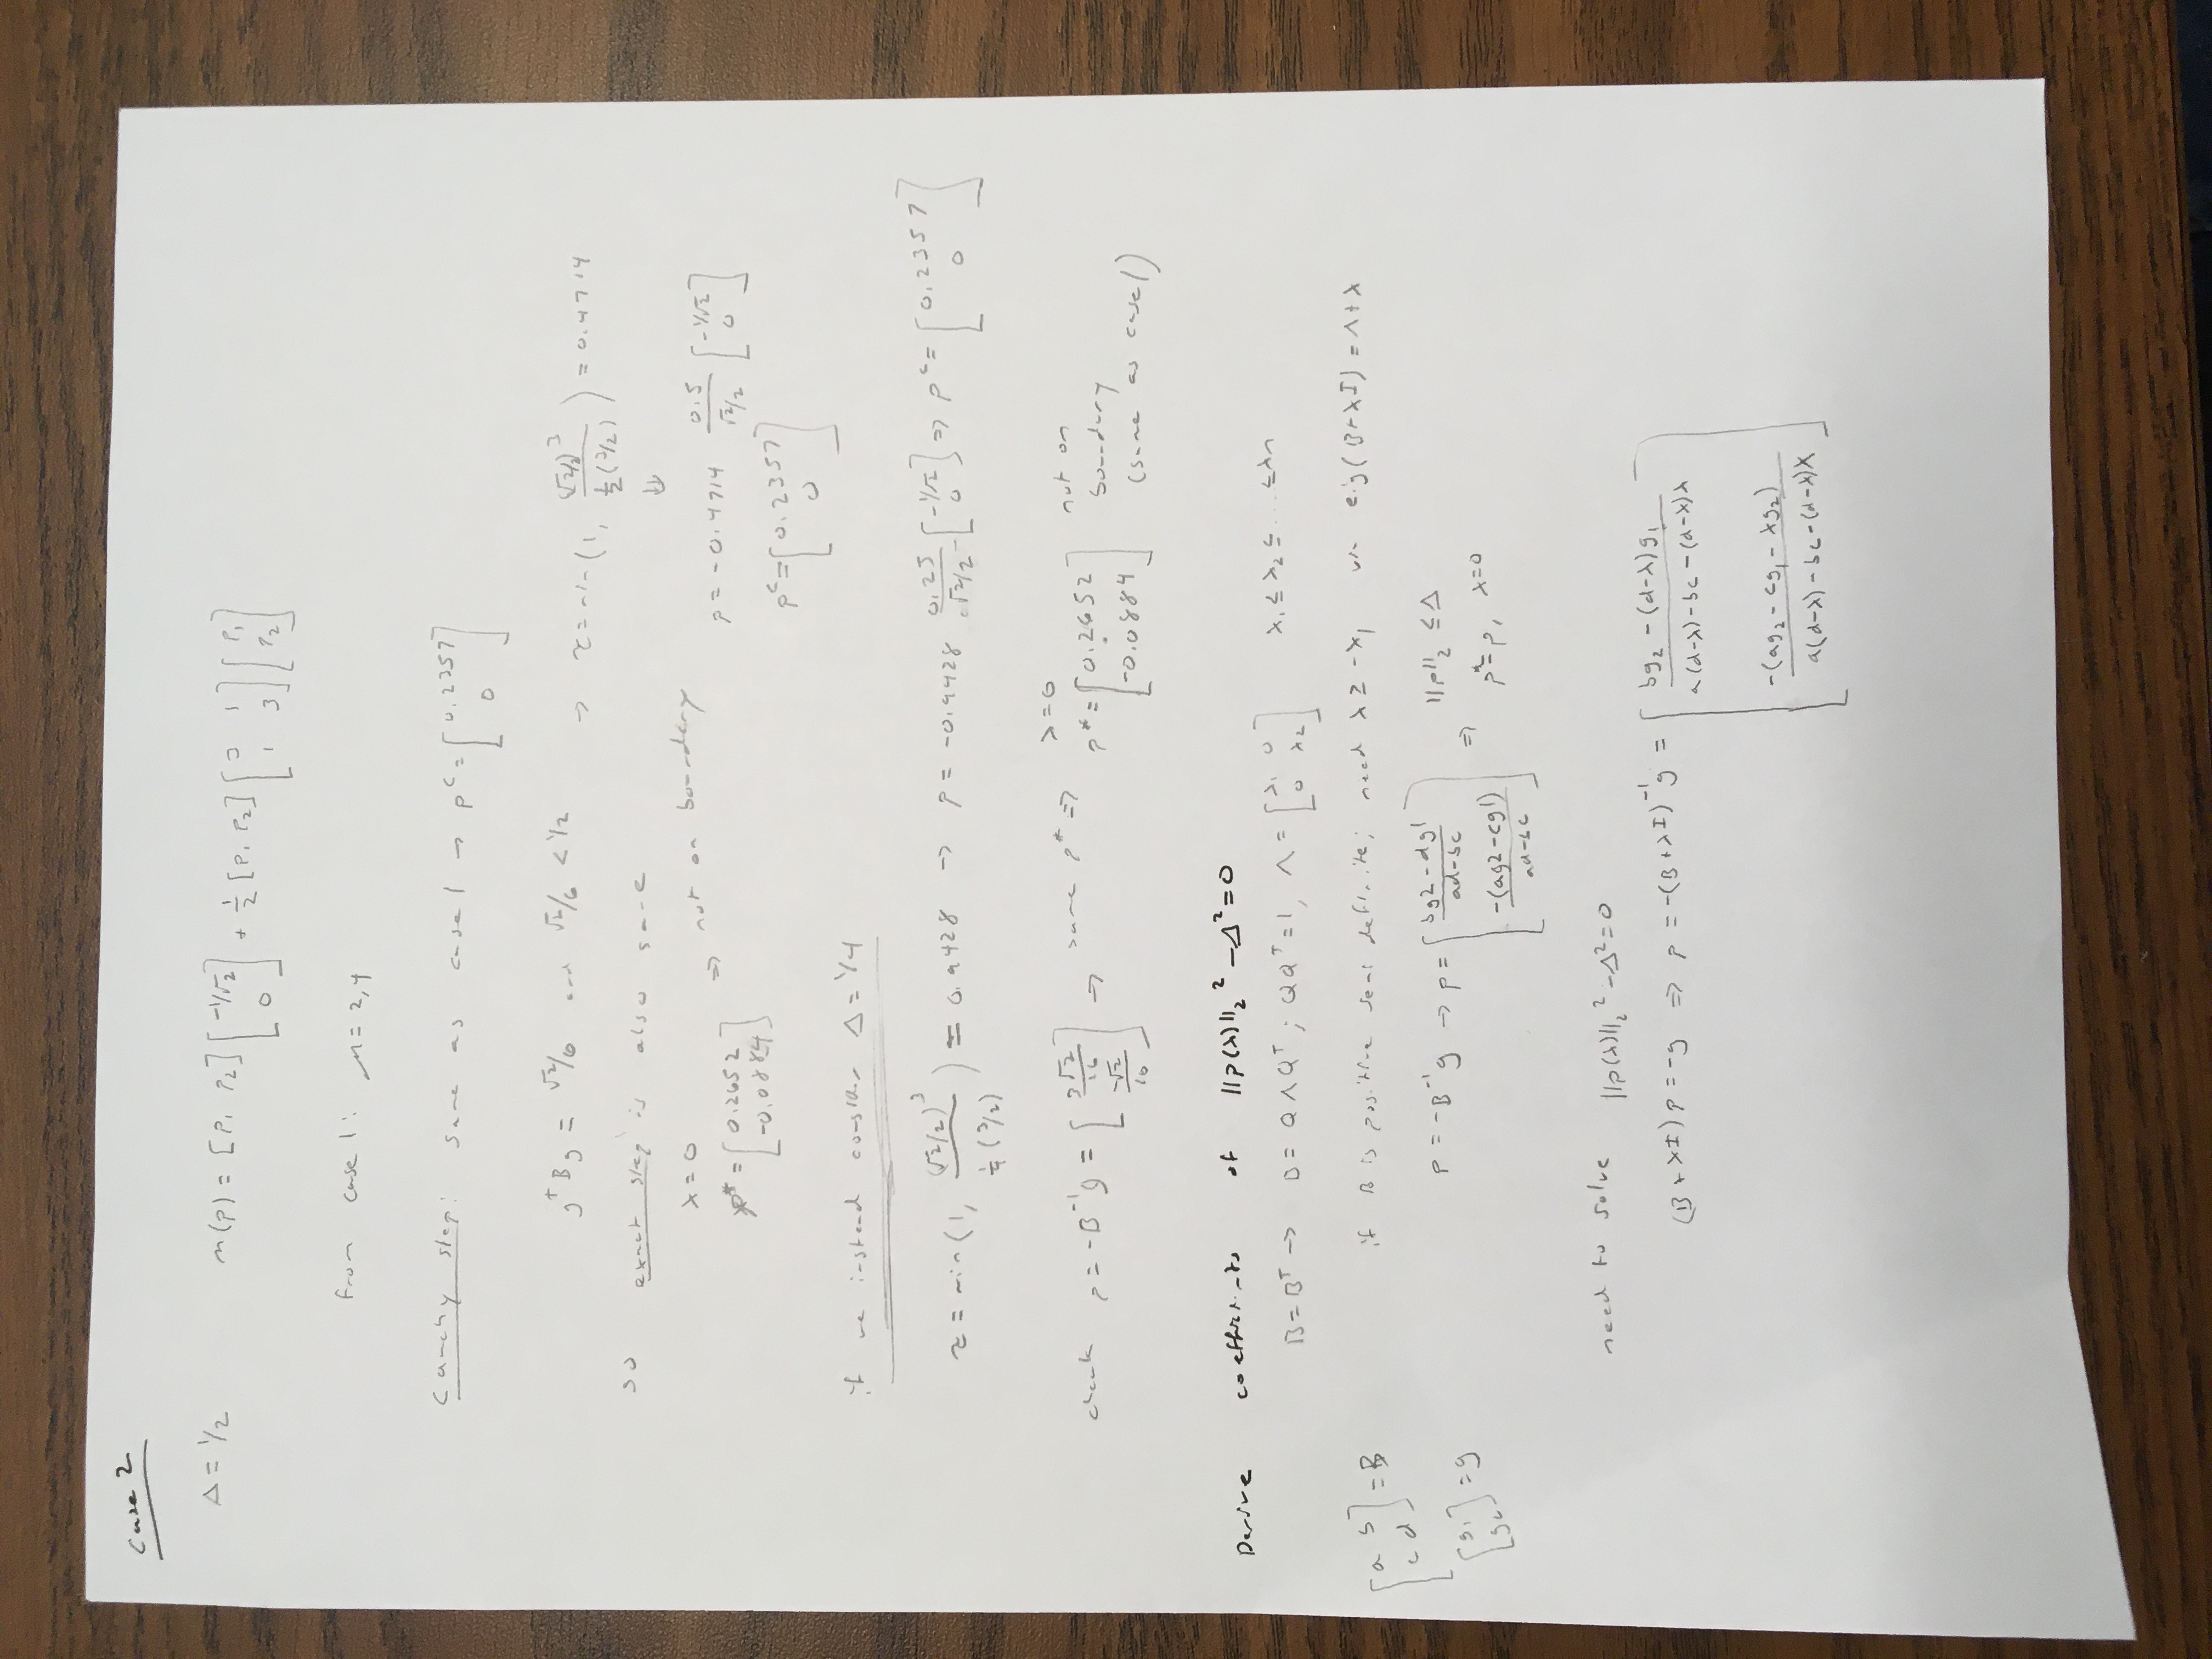 Case 2
Δ = 1/2 m(p) = [p₁ p₂] [-1/√2 ; 0] + 1/2 [p₁ p₂] [3 1 ; 1 3] [p₁ ; p₂]
from case 1: μ = 2, 4
Cauchy step: same as case 1 → pᶜ = [0.2357 ; 0]
gᵀBg = √2/6 and √2/6 < 1/2 → τ = min(1, (√2/2)³ / (1/2 (3/2))) = 0.4714
⇓
so exact step is also same
λ = 0
p* = [0.2652 ; -0.0884] ⇒ not on boundary
p = -0.4714 0.5/(√2/2) [-1/√2 ; 0]
pᶜ = [0.2357 ; 0]
if we instead consider Δ = 1/4
τ = min(1, (√2/2)³ / (1/4 (3/2))) = 0.9428 → p = -0.9428 0.25/(√2/2) [-1/√2 ; 0] ⇒ pᶜ = [0.2357 ; 0]
check p = -B⁻¹g = [3√2/16 ; -√2/16] ⇒ same p* ⇒ λ = 0 p* = [0.2652 ; -0.0884] not on boundary (same as case 1)
Derive coefficients of ||p(λ)||₂² - Δ² = 0
B = Bᵀ → B = QΛQᵀ ; QQᵀ = 1, Λ = [λ₁ 0 ; 0 λ₂] λ₁ ≤ λ₂ ≤ ... ≤ λn
[a b ; c d] = B
[g₁ ; g₂] = g
if B is positive semi definite; need λ ≥ -λ₁ via eig(B+λI) = Λ+λ
p = -B⁻¹g → p = [(bg2 - dg1)/(ad-bc) ; -(ag2 - cg1)/(ad-bc)] ⇒ ||p||₂ ≤ Δ
p* = p, λ = 0
need to solve ||p(λ)||₂² - Δ² = 0
(B + λI)p = -g ⇒ p = -(B+λI)⁻¹g = [(bg₂ - (d-λ)g₁)/(a(d-λ) - bc - (d-λ)λ) ; -(ag₂ - cg₁ - λg₂)/(a(d-λ) - bc - (d-λ)λ)]